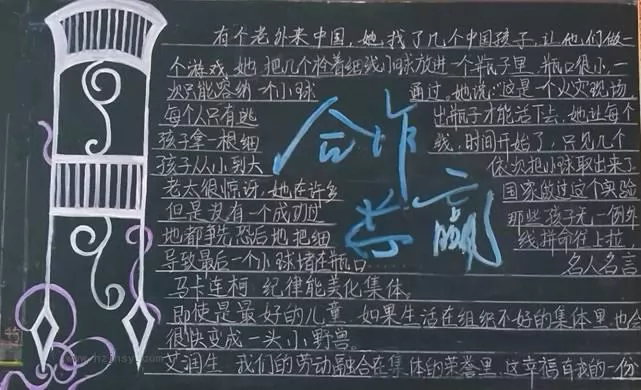 有个老外来中国,她找了几个中国孩子,让他们做一
个游戏,她把几个拴着细线小球放进一个瓶子里,瓶口很小,一
次只能容纳一个小球 通过。她说:"这是一个火灾现场
每个人只有逃 出瓶子才能活下去,她让每个
孩子拿一根细 线,时间开始了,只见几个
孩子从小到大 依次把小球取出来了
老太很惊讶,她在许多 国家做过这个实验
但是没有一个成功过 那些孩子无一例外
地都争先恐后地把细 线拼命往上拉,
导致最后一个小球堵在瓶口 名人名言
合作
共赢
马卡连柯 纪律能美化集体。
即使是最好的儿童,如果生活在组织不好的集体里,也会
很快变成一头小野兽。
艾润生 我们的劳动融合在集体的荣誉里,这幸福有我的一份